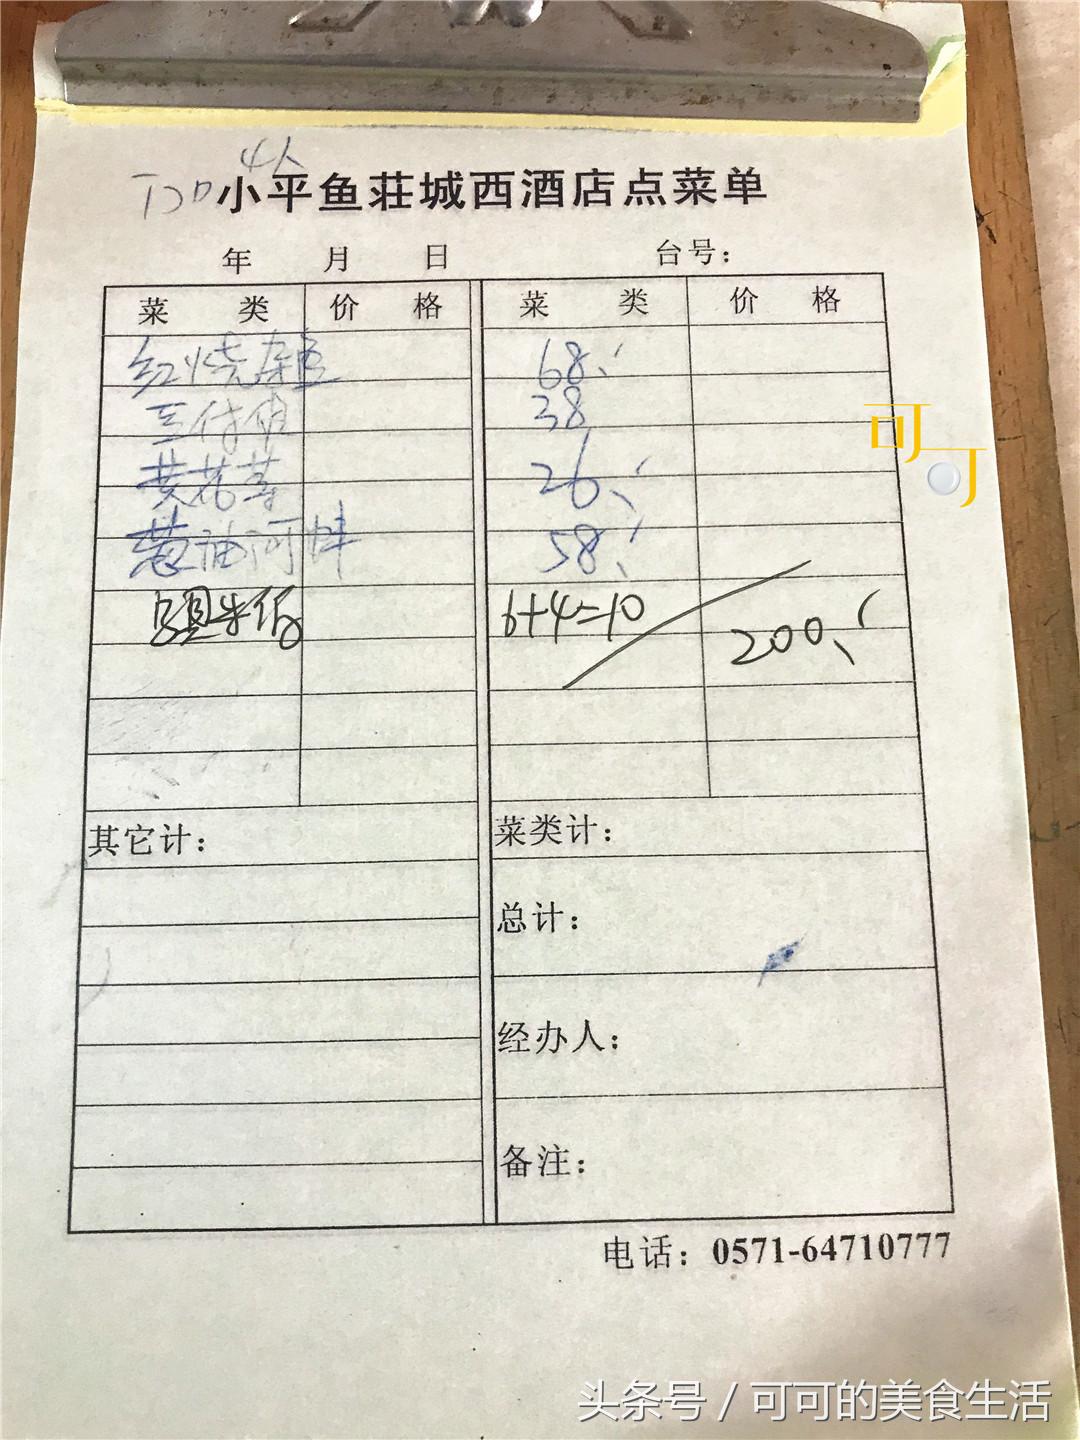 4人
小平鱼莊城西酒店点菜单
年 月 日 台号：
菜 类 价 格 菜 类 价 格
红烧杂鱼 68
38
黄花菜 26
葱油河蚌 58
6+4=10
200
可可
其它计： 菜类计：
总计：
经办人：
备注：
电话：0571-64710777
头条号 / 可可的美食生活